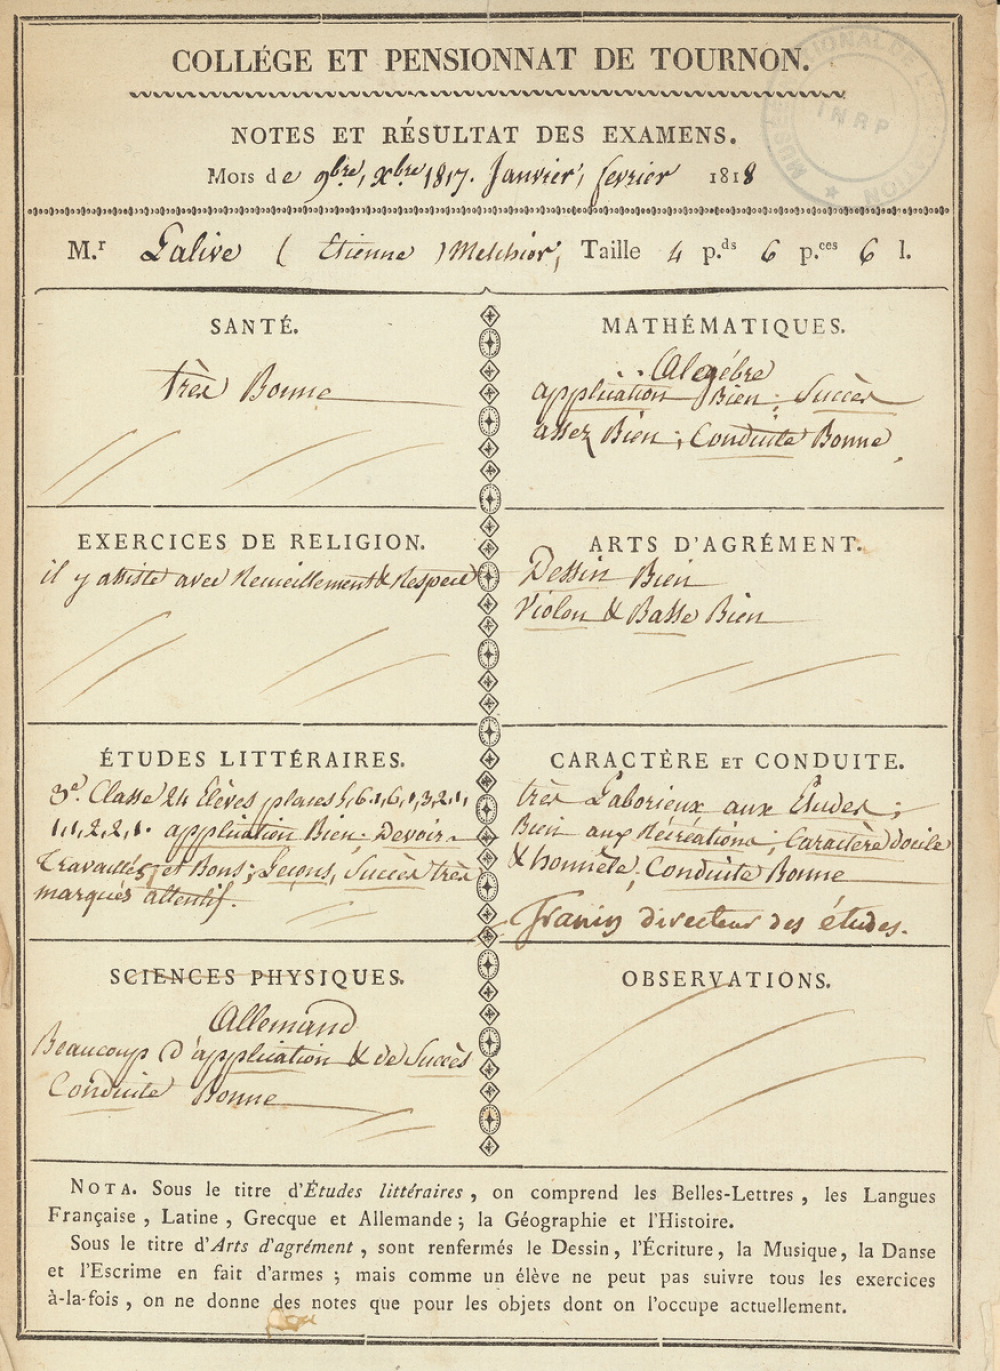 COLLÉGE ET PENSIONNAT DE TOURNON.
INRP
NOTES ET RÉSULTAT DES EXAMENS.
Mois de 9bre, Xbre 1817. Janvier, fevrier 1818
M.r Lalive ( Etienne ) Melchior, Taille 4 p.ds 6 p.ces 6 l.
SANTÉ.
très Bonne
MATHÉMATIQUES.
Algébre
application Bien; Succès
assez Bien; Conduite Bonne
EXERCICES DE RELIGION.
il y assiste avec Recueillement & Respect
ARTS D'AGRÉMENT.
Dessin Bien
Violon & Basse Bien
ÉTUDES LITTÉRAIRES.
3e. Classe 24 Elèves places 5,6,1,6,1,3,2,1,
1,1,2,2,1. application Bien; Devoirs
travaillés et Bons; Leçons, Succès très
marqués attentif.
CARACTÈRE ET CONDUITE.
très Laborieux aux Etudes;
Bien aux Récréations; Caractère docile
& honnête; Conduite Bonne
directeur des études.
SCIENCES PHYSIQUES.
Allemand
Beaucoup d'application & de Succès
Conduite Bonne
OBSERVATIONS.
NOTA. Sous le titre d'Études littéraires, on comprend les Belles-Lettres, les Langues
Française, Latine, Grecque et Allemande; la Géographie et l'Histoire.
Sous le titre d'Arts d'agrément, sont renfermés le Dessin, l'Écriture, la Musique, la Danse
et l'Escrime en fait d'armes; mais comme un élève ne peut pas suivre tous les exercices
à-la-fois, on ne donne des notes que pour les objets dont on l'occupe actuellement.